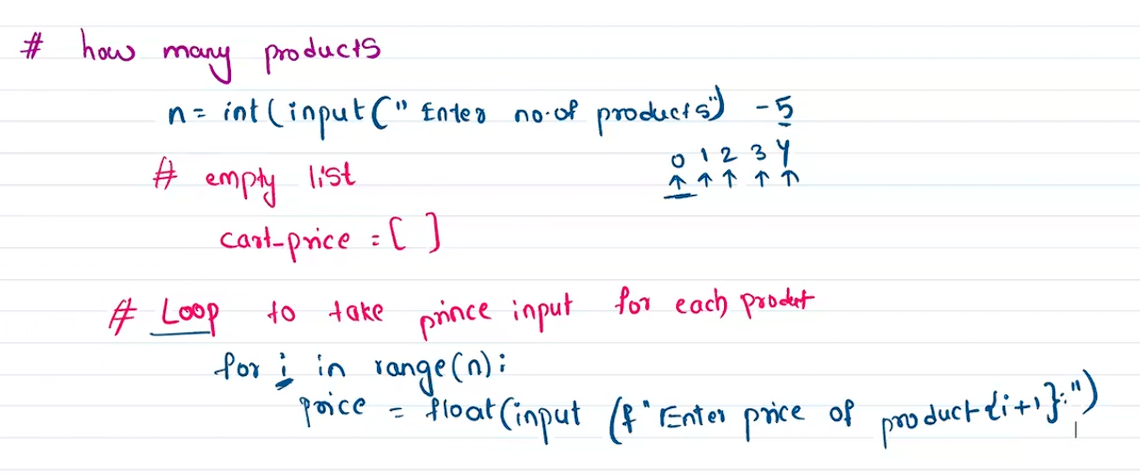 # how many products
n= int(input(" Enter no.of products") -5
0 1 2 3 4
# empty list
cart_price = [ ]
# Loop to take prince input for each produt
for i in range(n):
price = float(input (f"Enter price of product{i+1}:")